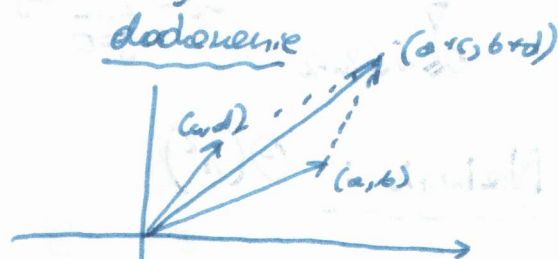 dodawanie
(a+c, b+d)
(c,d)
(a,b)